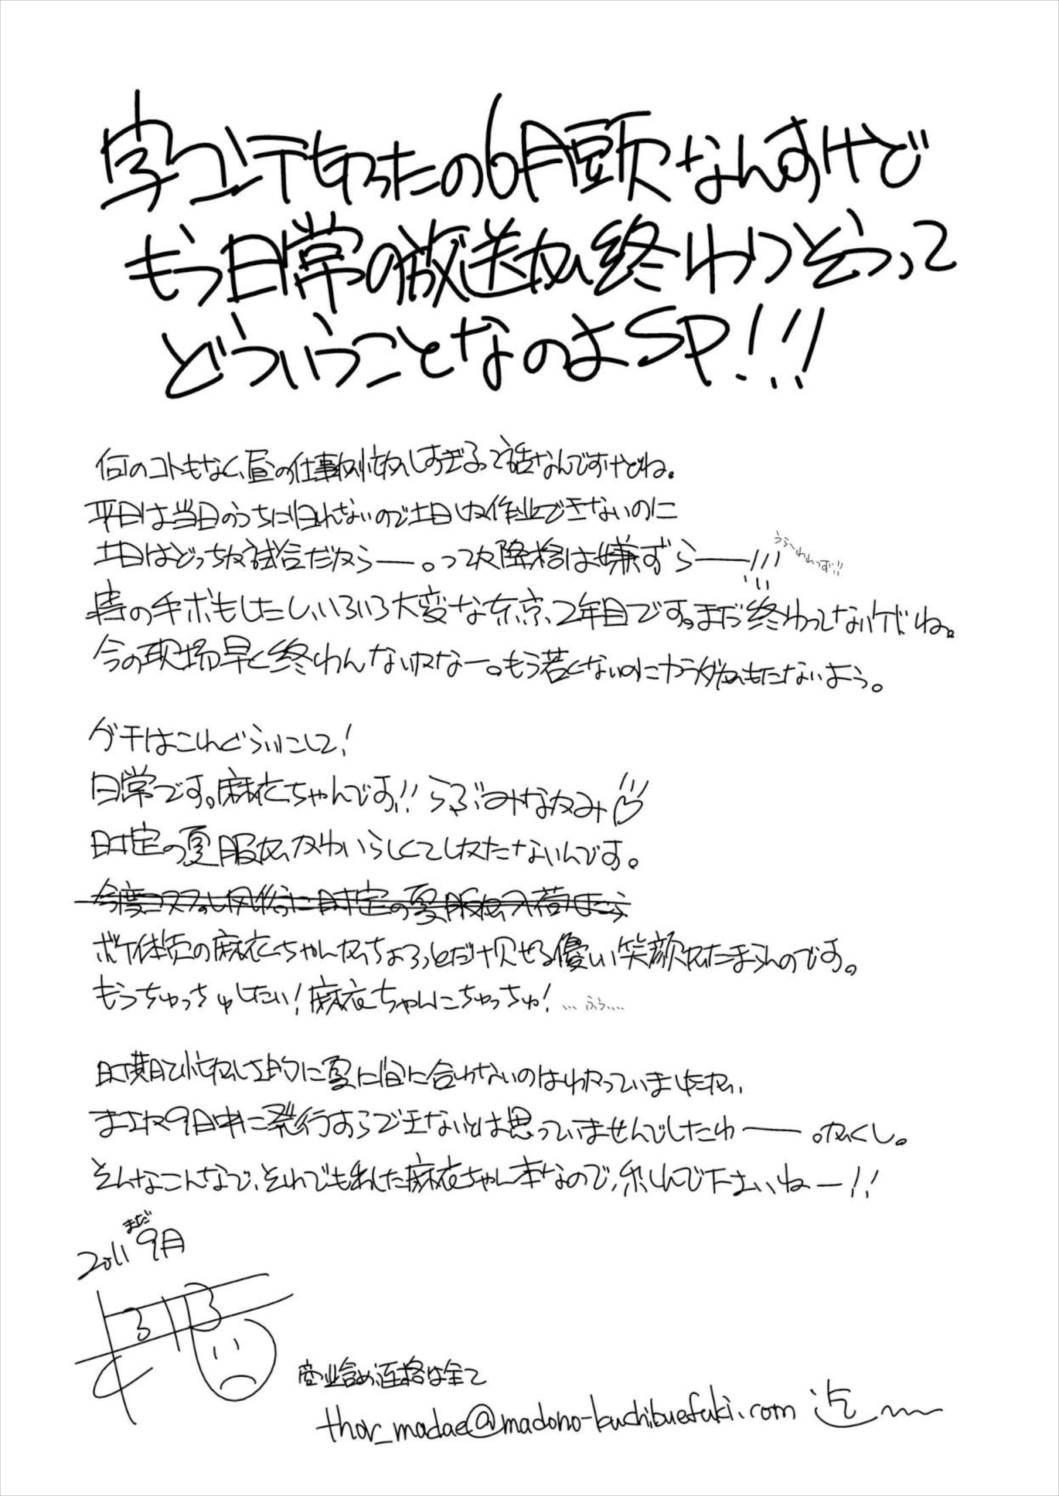 字コンテ切ったの6月頭なんすけど
もう日常の放送が終わりそうって
どういうことなのよSP!!!
何のコトもなく、昼の仕事が忙しすぎるって話なんですけどね。
平日は当日のうちに帰れないので土日しか作業できないのに
土日はどっちか試合だから―。って次降格は嫌ずら――!!!
うぅ～わわっず!!
嫁のキボもしたし、いろいろ大変な東京、2年目です。まだ終わってないケドね。
今の現場早く終わんないかなー。もう若くないのにカラダがもたないよう。
グチはこれぐらいにして!
日常です。麻衣ちゃんです!! らぶみなかみ
時定の夏服がかわいらしくてしかたないんです。
今度コスプレ風俗に時定の夏服が入荷したら
ボケ体質の麻衣ちゃんがちょろっとだけ見せる優しい笑顔がたまらんのです。
もうちゅっちゅしたい!麻衣ちゃんにちゅっちゅ! … ふぅ……
時期と忙しさ的に夏に間に合わないのはわかっていましたが、
まさか9月中に発行すらできないとは思っていませんでしたわ――。がくし。
そんなこんなで、それでも来れた麻衣ちゃん本なので、楽しんで下さいねー!!
2011 まだ9月
商業含め連絡は全て
thor_madae@madono-kuchibuefuki.com 迄～